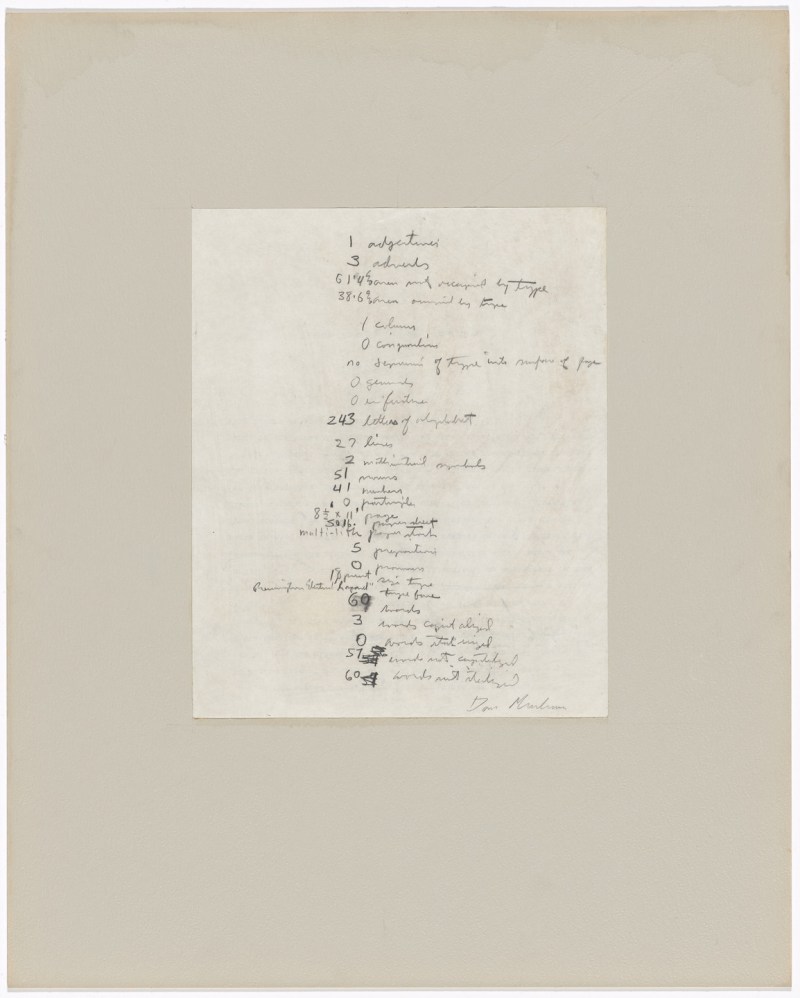 1 adjectives
3 adverbs
61.4% area not occupied by type
38.6% area occupied by type
1 columns
0 conjunctions
no of type into surface of page
0 gerunds
0 infinitives
243 letters of alphabet
27 lines
2 mathematical symbols
51 nouns
41 numbers
0 participle
8 1/2 x 11" page
50 lb. paper sheet
multi-lith paper stock
5 prepositions
0 pronouns
point size type
type face
60 words
3 words capitalized
0 words italicized
57 words not capitalized
60 words not italicized
Dan